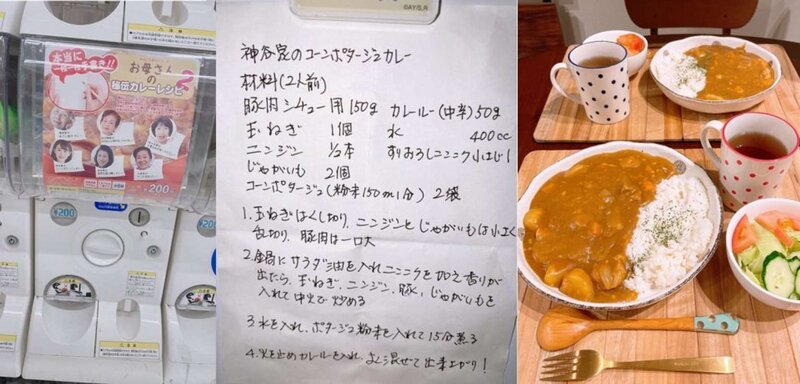 本当に
お母さんの
秘伝カレーレシピ
2
200円
¥200
©AY/S,R
神谷家のコーンポタージュカレー
材料(2人前)
豚肉シチュー用150g カレールー(中辛)50g
玉ねぎ 1個 水 400cc
ニンジン ½本 すりおろしニンニク小さじ1
じゃがいも 2個
コーンポタージュ(粉末150ml分) 2袋
1. 玉ねぎはくし切り、ニンジンとじゃがいもは小さく
乱切り、豚肉は一口大
2. 鍋にサラダ油を入れニンニクを加え香りが
出たら、玉ねぎ、ニンジン、豚、じゃがいもを
入れて中火で炒める
3. 水を入れ、ポタージュ粉末を入れて15分煮る
4. 火を止めカレールーを入れ、よく混ぜて出来上がり!